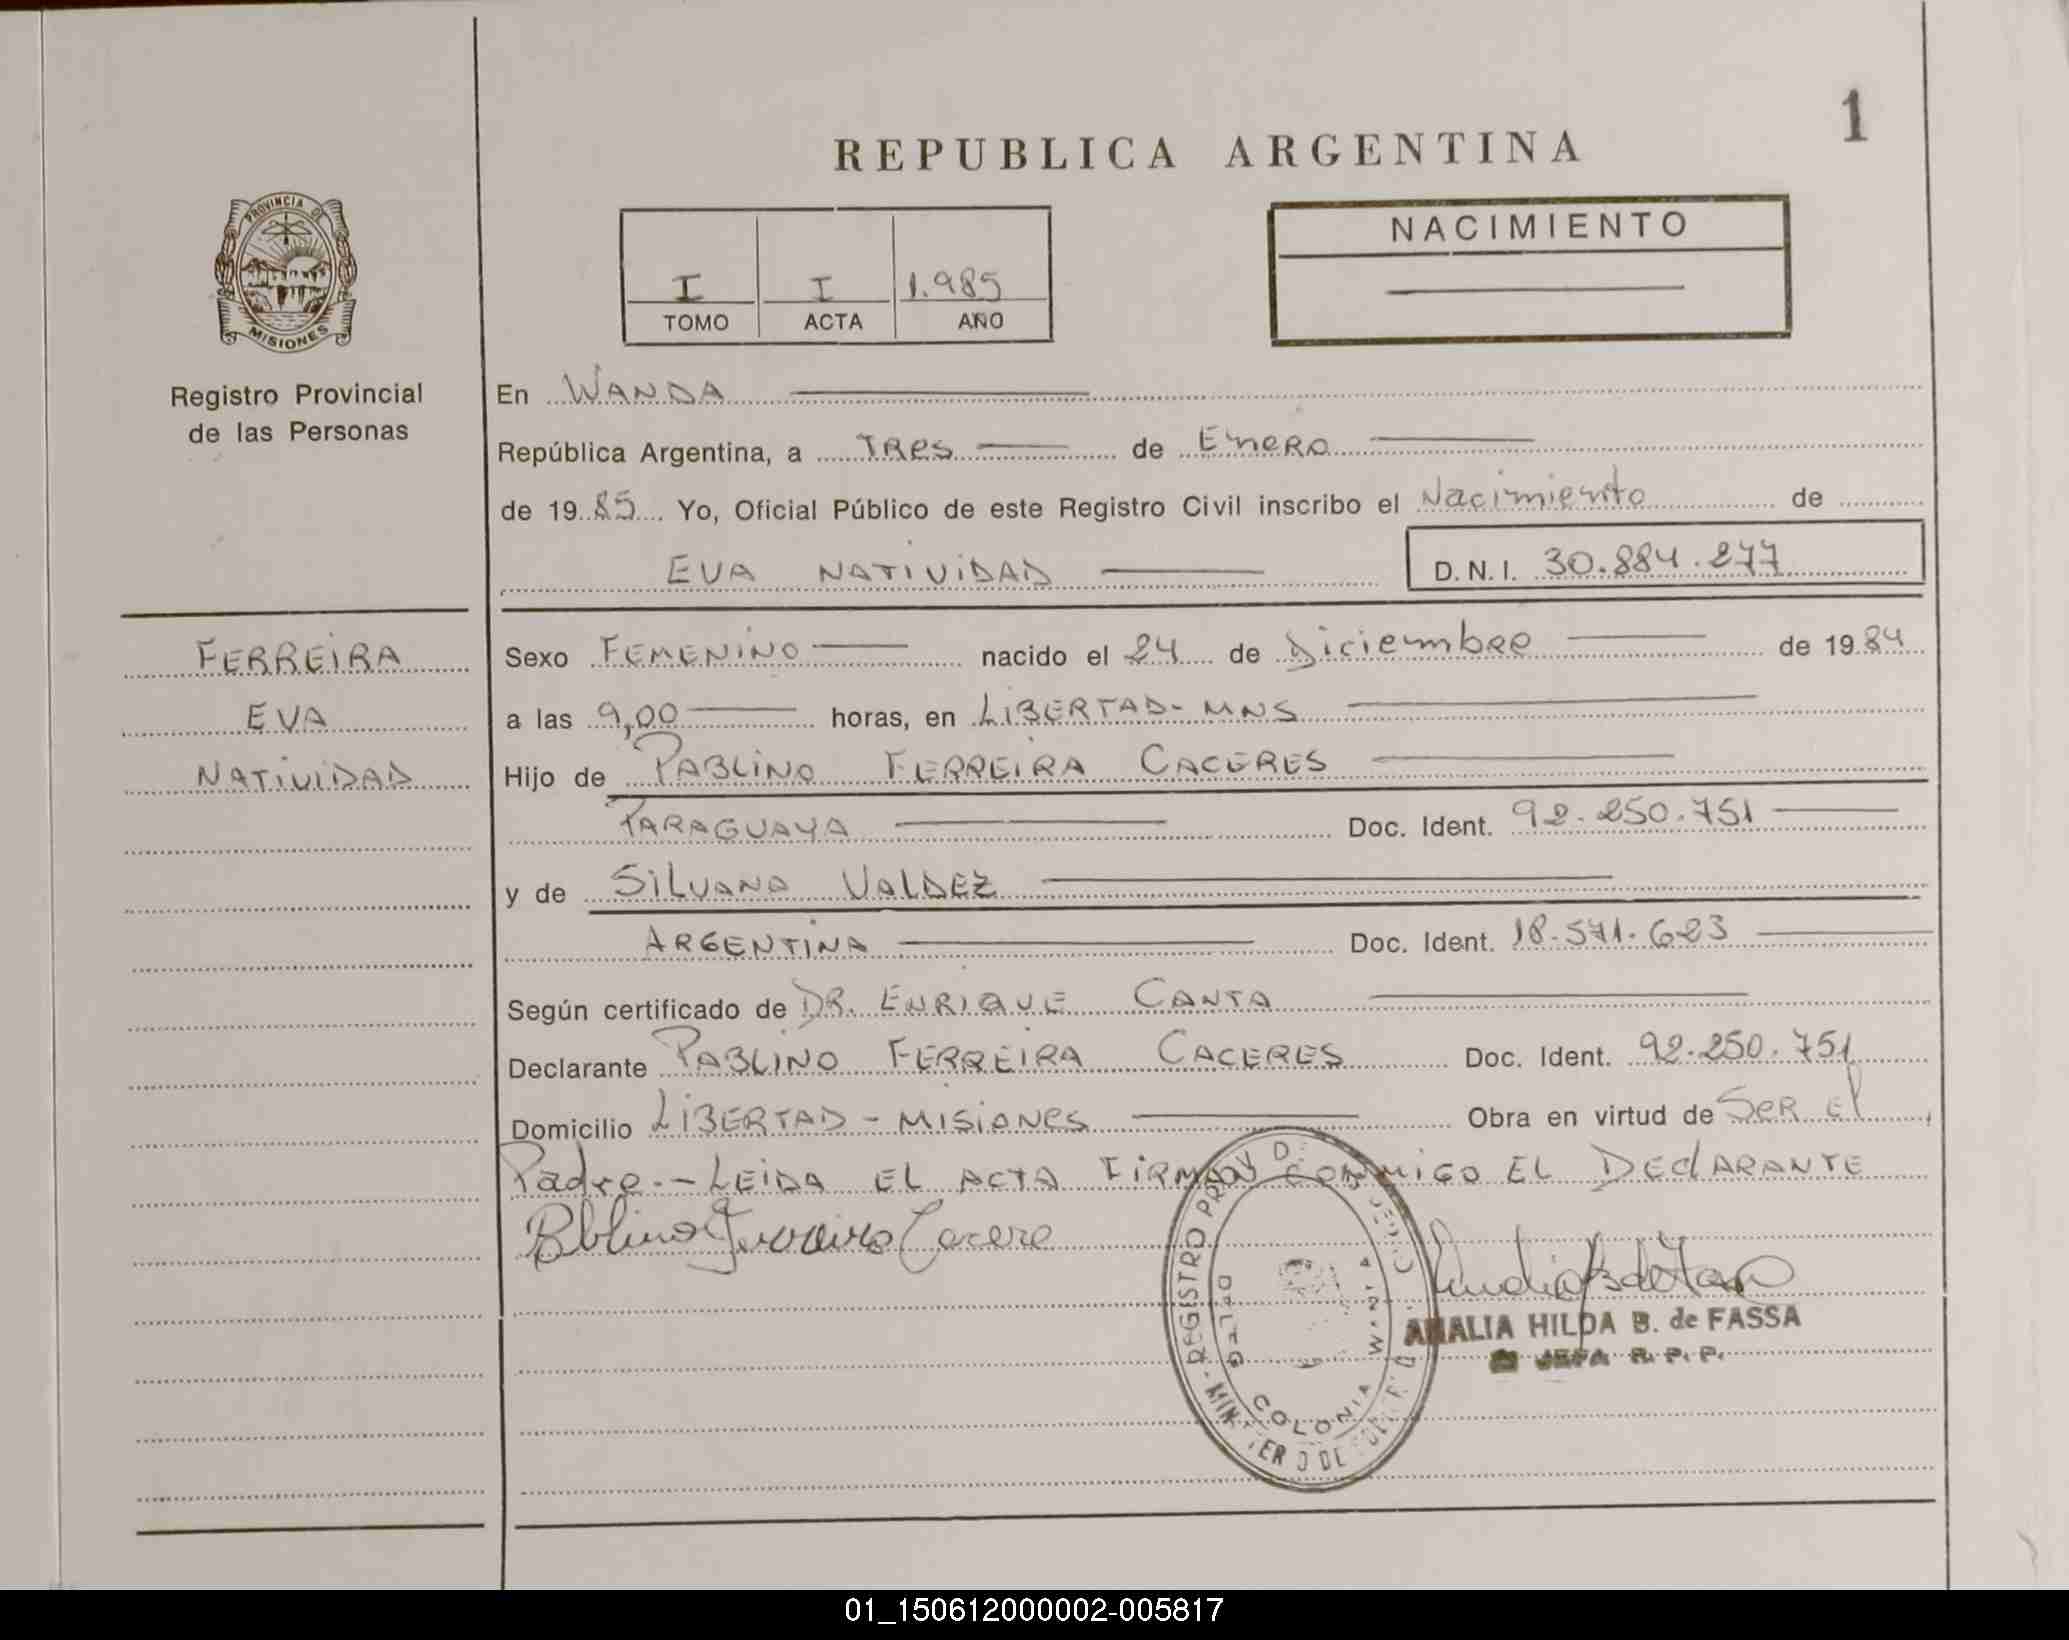 1
REPUBLICA ARGENTINA
PROVINCIA DE
MISIONES
Registro Provincial
de las Personas
I I 1.985
TOMO ACTA AÑO
NACIMIENTO
En WANDA
República Argentina, a TRES de ENERO
de 1985 Yo, Oficial Público de este Registro Civil inscribo el Nacimiento de
EVA NATIVIDAD D.N.I. 30.884.277
FERREIRA
EVA
NATIVIDAD
Sexo FEMENINO nacido el 24 de Diciembre de 1984
a las 9,00 horas, en LIBERTAD-MNS
Hijo de PABLINO FERREIRA CACERES
PARAGUAYA Doc. Ident. 92.250.751
y de SILVANA VALDEZ
ARGENTINA Doc. Ident. 18.571.623
Según certificado de DR. ENRIQUE CANTA
Declarante PABLINO FERREIRA CACERES Doc. Ident. 92.250.751
Domicilio LIBERTAD - MISIONES Obra en virtud de Ser el
Padre.- LEIDA EL ACTA FIRMAN CONMIGO EL DEClARANTE
REGISTRO PROV DE
COLONIA WANDA
AMALIA HILDA B. de FASSA
JEFA R. P. P.
01_150612000002-005817